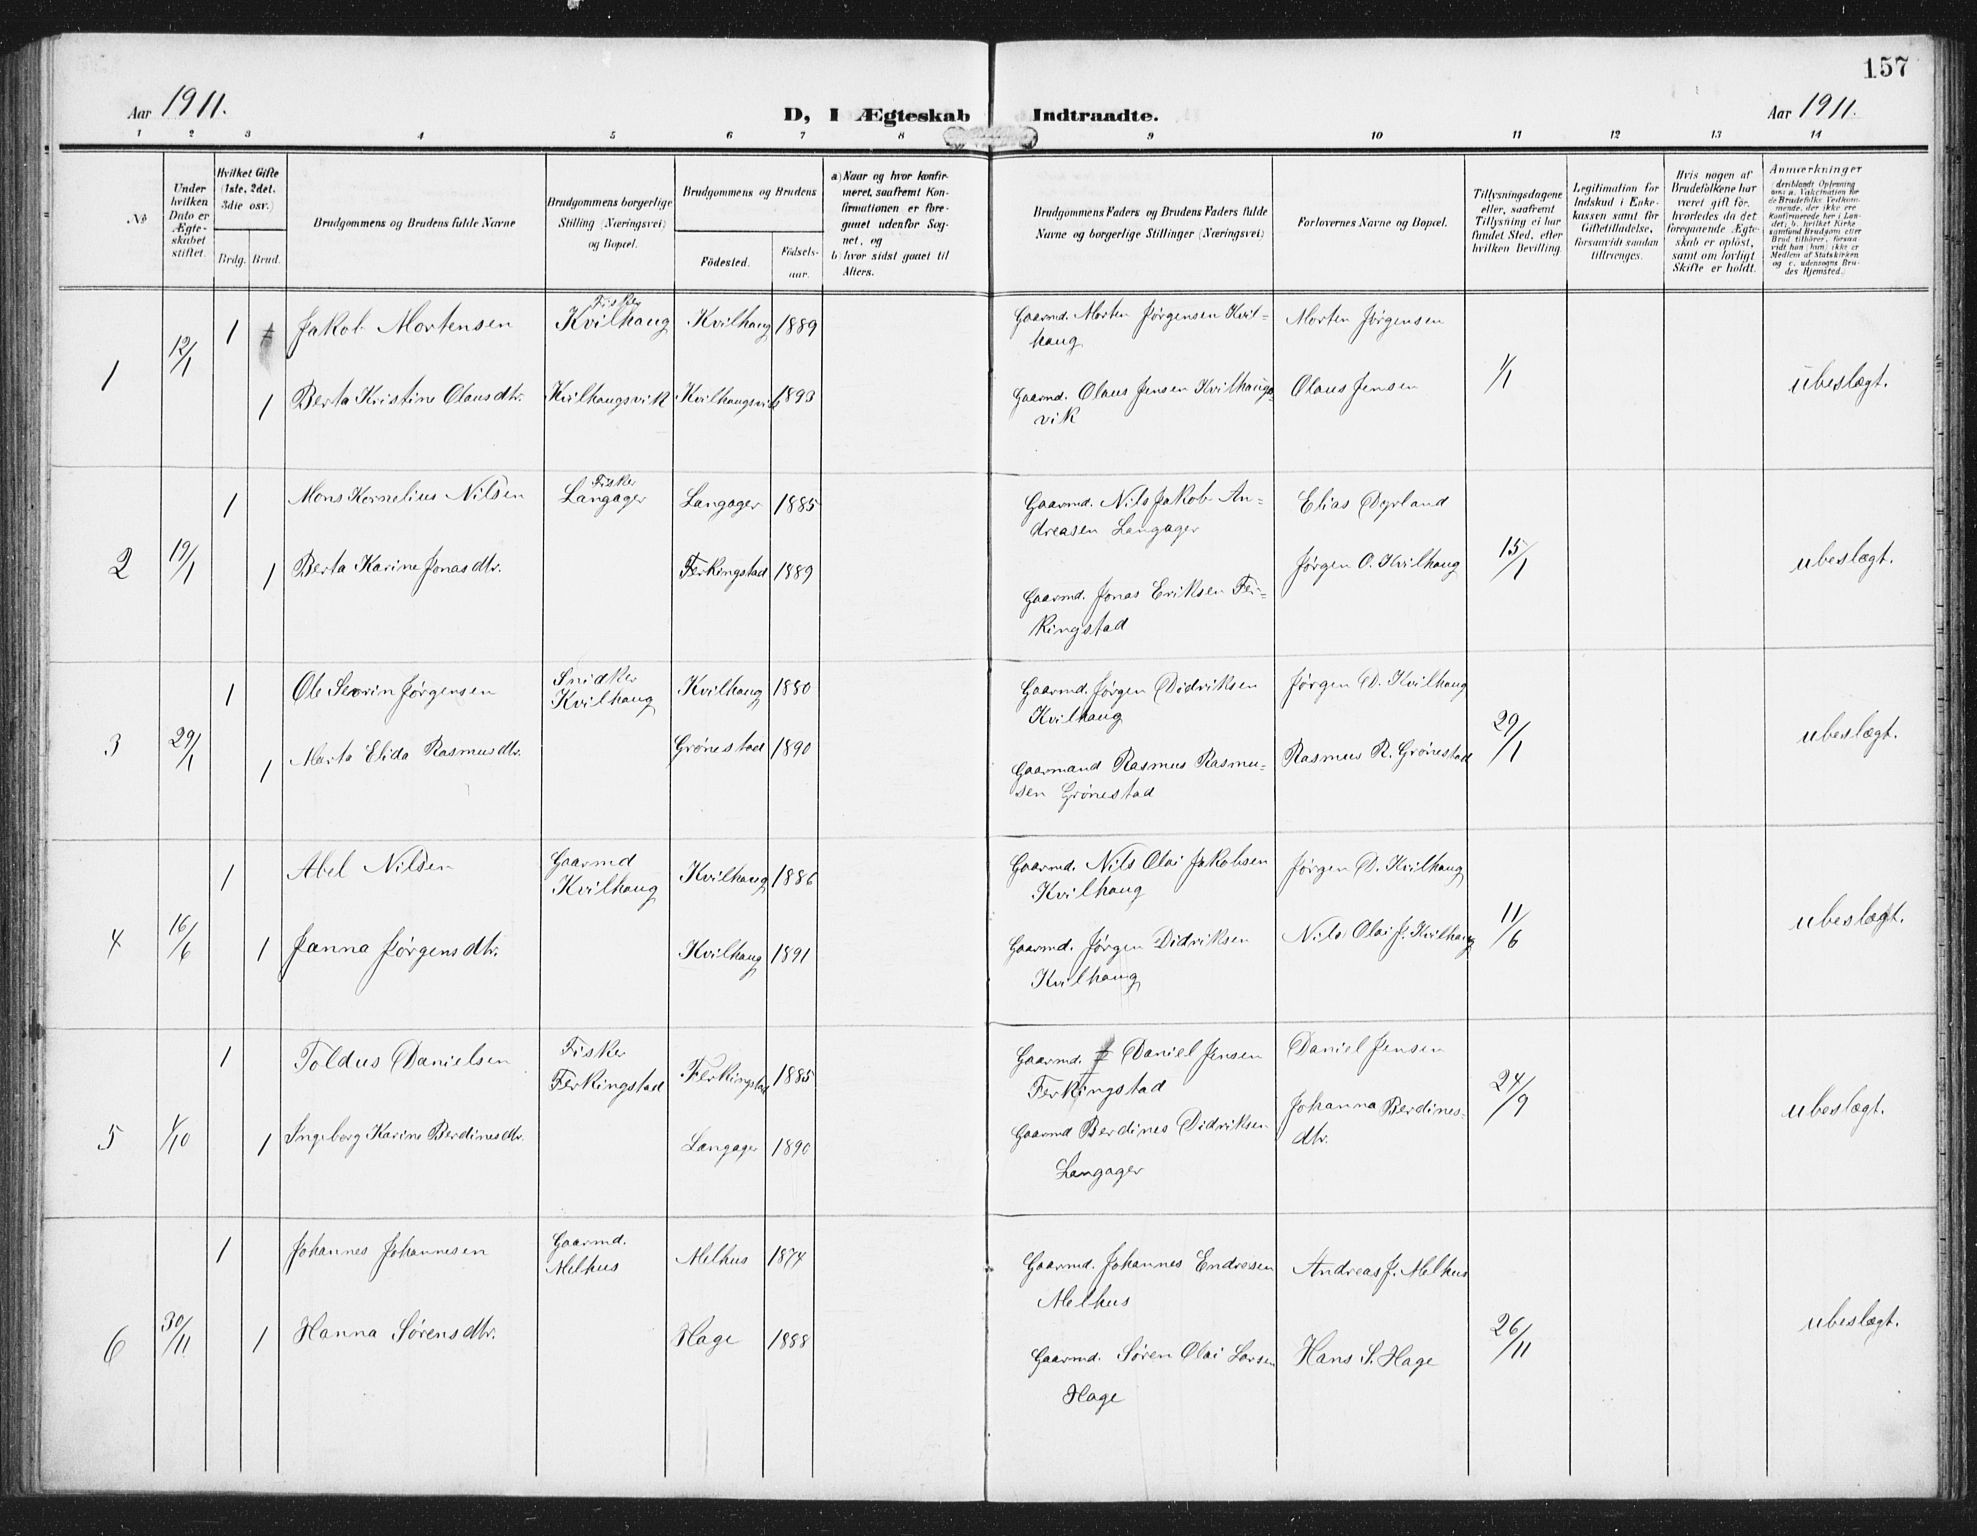 157
Aar 1911.
D, I Ægteskab Indtraadte.
Aar 1911.
1 2 3 4 5 6 7 8 9 10 11 12 13 14
№
Under hvilken Dato er Ægteskabet stiftet.
Hvilket Gifte (1ste, 2det, 3die osv.)
Brdg. Brud.
Brudgommens og Brudens fulde Navne
Brudgommens borgerlige Stilling (Næringsvei) og Bopæl.
Brudgommens og Brudens
Födested.
Födselsaar.
a) Naar og hvor konfirmeret, saafremt Konfirmationen er foregaaet udenfor Sognet, og
b) hvor sidst gaaet til Alters.
Brudgommens Faders og Brudens Faders fulde Navne og borgerlige Stillinger (Næringsvei)
Forlovernes Navne og Bopæl.
Tillysningsdagene eller, saafremt Tillysning ei har fundet Sted, efter hvilken Bevilling.
Legitimation for Indskud i Enkekassen samt for Giftetilladelse, forsaavidt saadan tiltrænges.
Hvis nogen af Brudefolkene har været gift før, hvorledes da det foregaaende Ægteskab er opløst, samt om lovligt Skifte er holdt.
Anmærkninger
(deriblandt Oplysning om: a. Vakcination for de Brudefolks Vedkommende, der ikke ere Konfirmerede her i Landet; b. hvilket Kirkesamfund Brudgom eller Brud tilhører, forsaavidt han (hun) ikke er Medlem af Statskirken og c. udensogns Brudes Hjemsted.)
1
12/1
1
Jakob Mortensen
Fisker
Kvilhaug
Kvilhaug 1889
Gaarmd. Morten Jørgensen Kvil-
haug
Morten Jørgensen
1/1
ubeslægt.
1
Berta Kristine Olausdtr.
Kvilhaugsvik
Kvilhaugsvik 1893
Gaarmd. Olaus Jensen Kvilhaugs-
vik
Olaus Jensen
2
19/1
1
Mons Kornelius Nilsen
Fisker
Langager
Langager 1885
Gaarmd. Nils Jakob An-
dreasen Langager
Elias Dyrland
15/1
ubeslægt.
1
Berta Karine Jonasdtr.
Ferkingstad 1889
Gaarmd. Jonas Eriksen Fer-
kingstad
Jørgen O. Kvilhaug
3
29/1
1
Ole Severin Jørgensen
Snidker
Kvilhaug
Kvilhaug 1880
Gaarmd. Jørgen Didriksen
Kvilhaug
Jørgen D. Kvilhaug
29/1
ubeslægt.
1
Marta Elida Rasmusdtr.
Grønestad 1890
Gaarmand Rasmus Rasmu-
sen Grønestad
Rasmus R. Grønestad
4
16/6
1
Abel Nilsen
Gaarmd
Kvilhaug
Kvilhaug 1886
Gaarmd. Nils Olai Jakobsen
Kvilhaug
Jørgen D. Kvilhaug
11/6
ubeslægt.
1
Janna Jørgensdtr.
Kvilhaug 1891
Gaarmd. Jørgen Didriksen
Kvilhaug
Nils Olai J. Kvilhaug
5
1/10
1
Toldus Danielsen
Fisker
Ferkingstad
Ferkingstad 1885
Gaarmd. Daniel Jensen
Ferkingstad
Daniel Jensen
24/9
ubeslægt.
1
Ingeborg Karine Berdinesdtr.
Langager 1890
Gaarmd Berdines Didriksen
Langager
Johanna Berdines-
dtr.
6
30/11
1
Johannes Johannesen
Gaarmd.
Melhus
Melhus 1874
Gaarmd. Johannes Endresen
Melhus
Andreas J. Melhus
26/11
ubeslægt.
1
Hanna Sørensdtr.
Hage 1888
Gaarmd. Søren Olai Larsen
Hage
Hans S. Hage